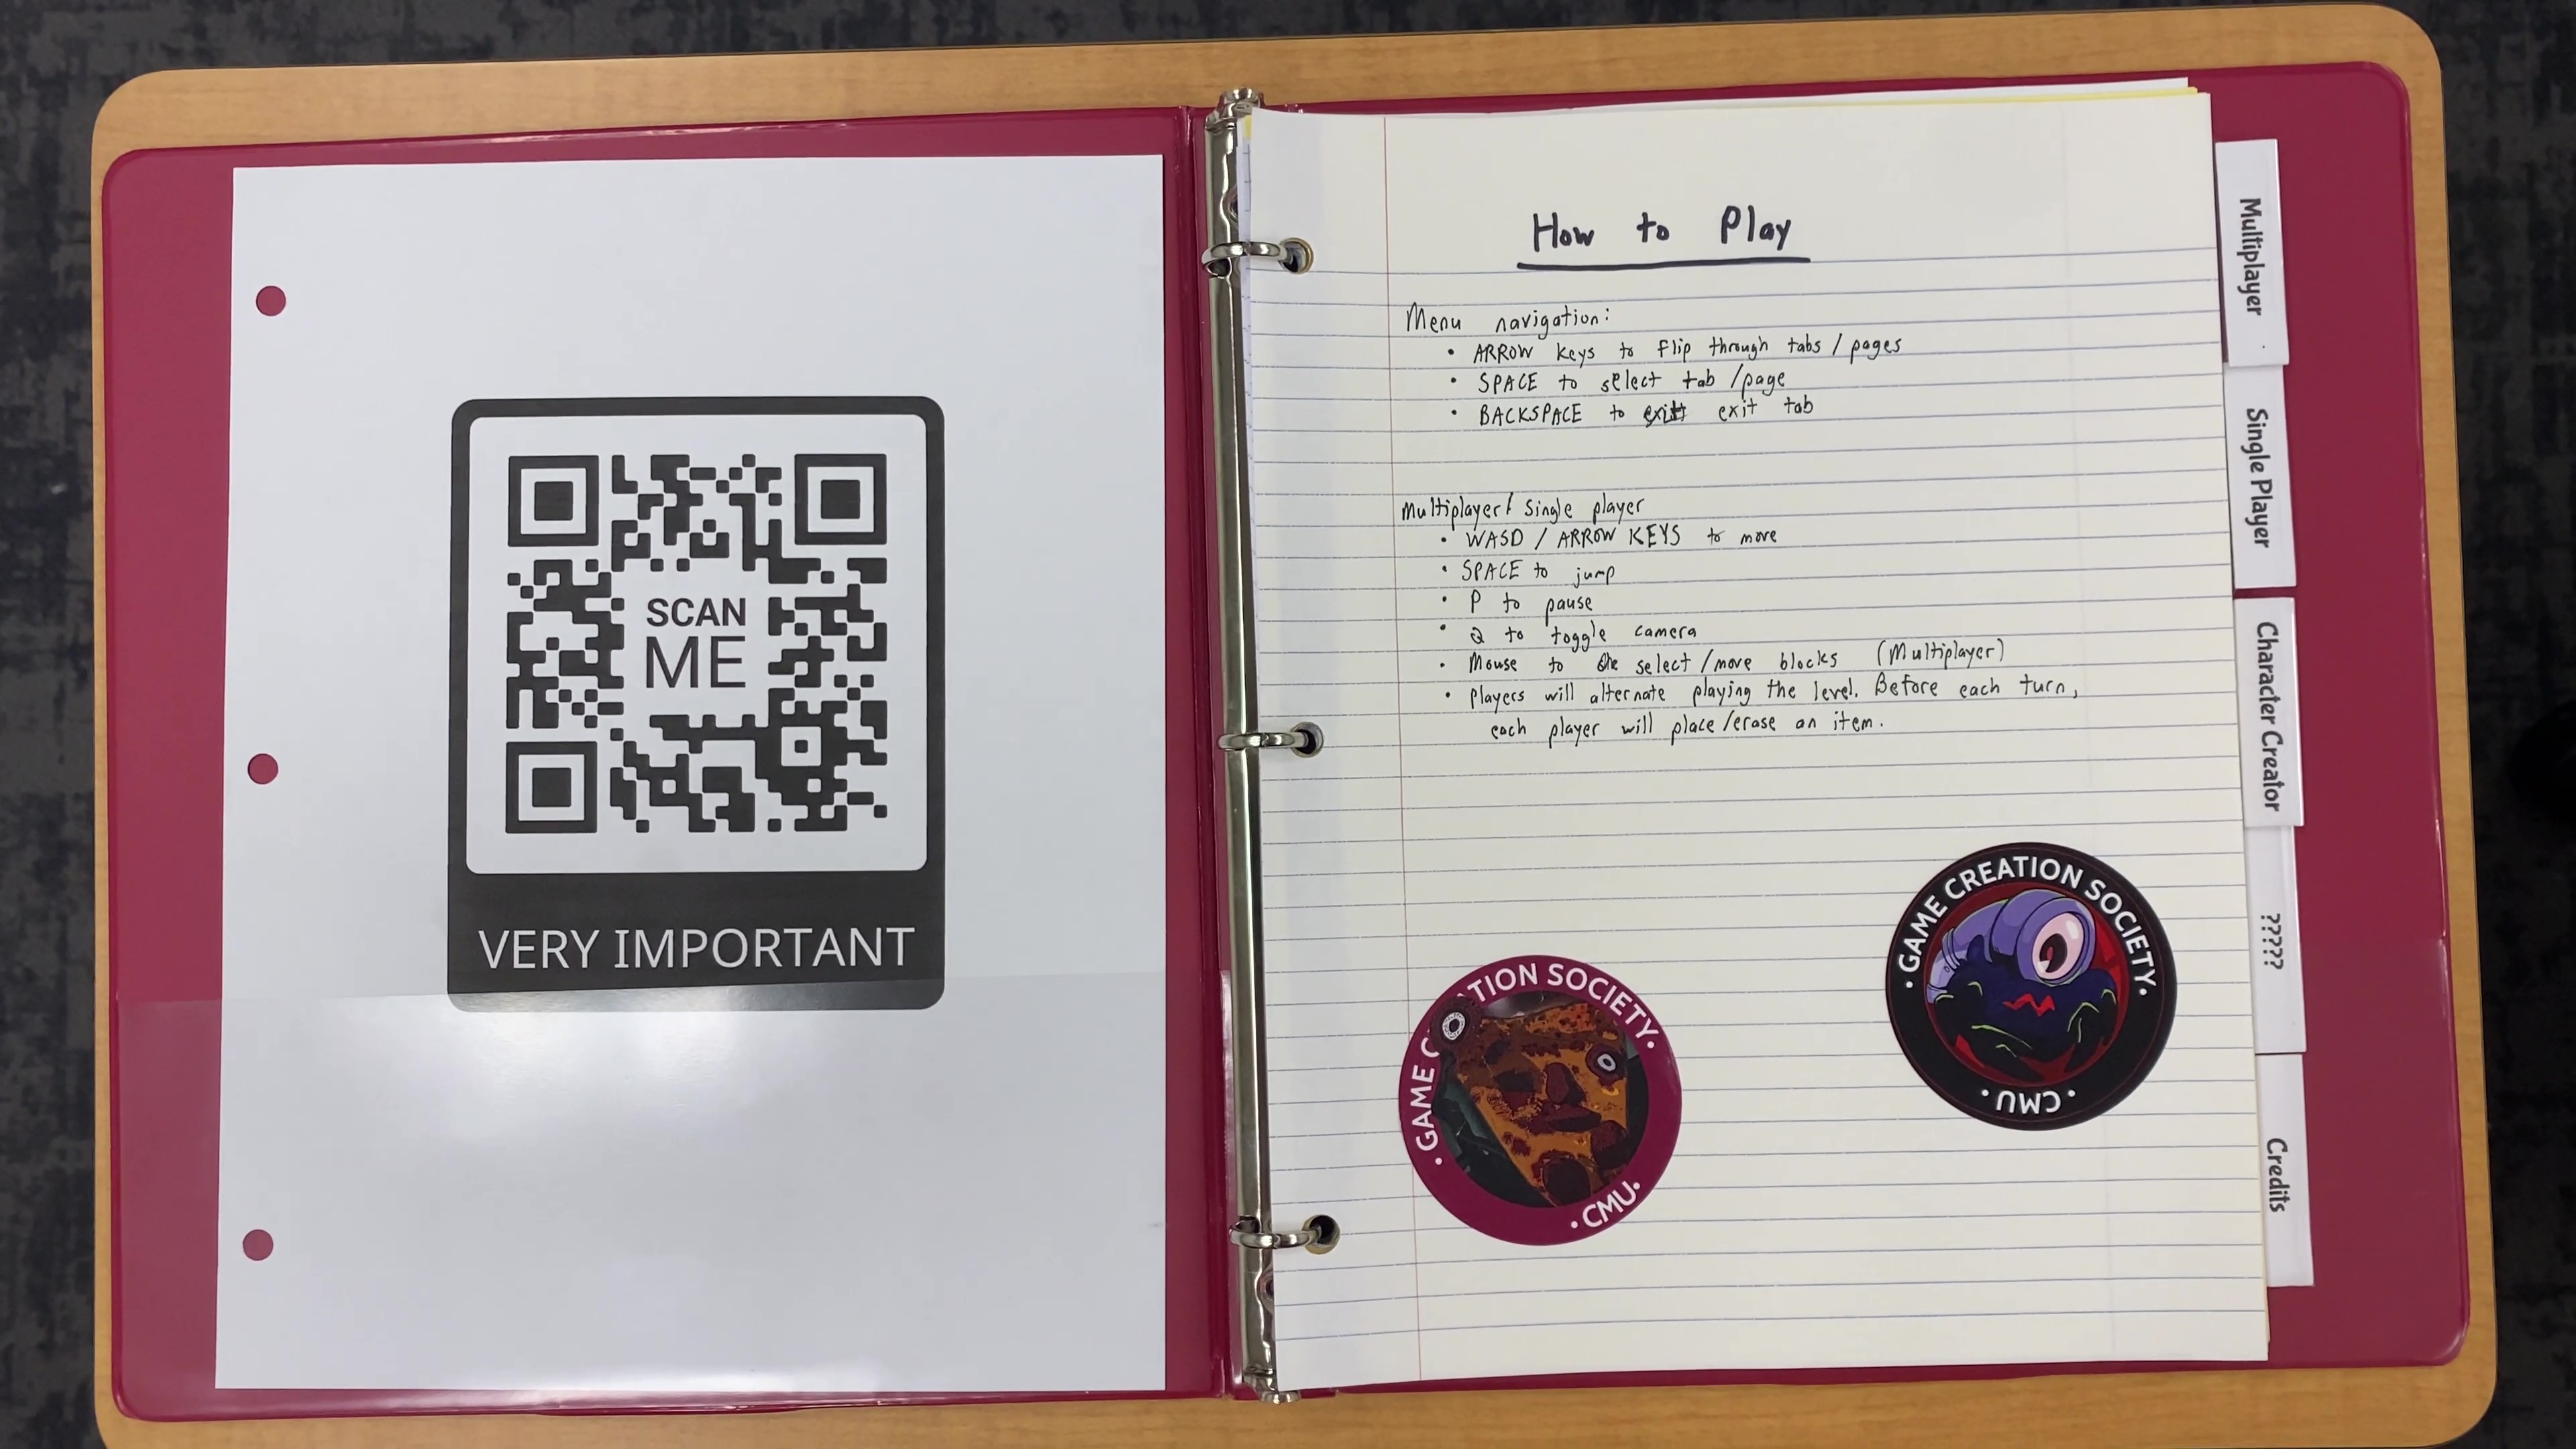 SCAN
ME
VERY IMPORTANT
How to Play
Menu navigation:
• ARROW keys to flip through tabs / pages
• SPACE to select tab / page
• BACKSPACE to exit exit tab
Multiplayer / Single player
• WASD / ARROW KEYS to move
• SPACE to jump
• P to pause
• Q to toggle camera
• Mouse to select / move blocks (Multiplayer)
• Players will alternate playing the level. Before each turn,
each player will place / erase an item.
• GAME C TION SOCIETY •
• CMU •
• GAME CREATION SOCIETY •
• CMU •
Multiplayer
Single Player
Character Creator
?????
Credits